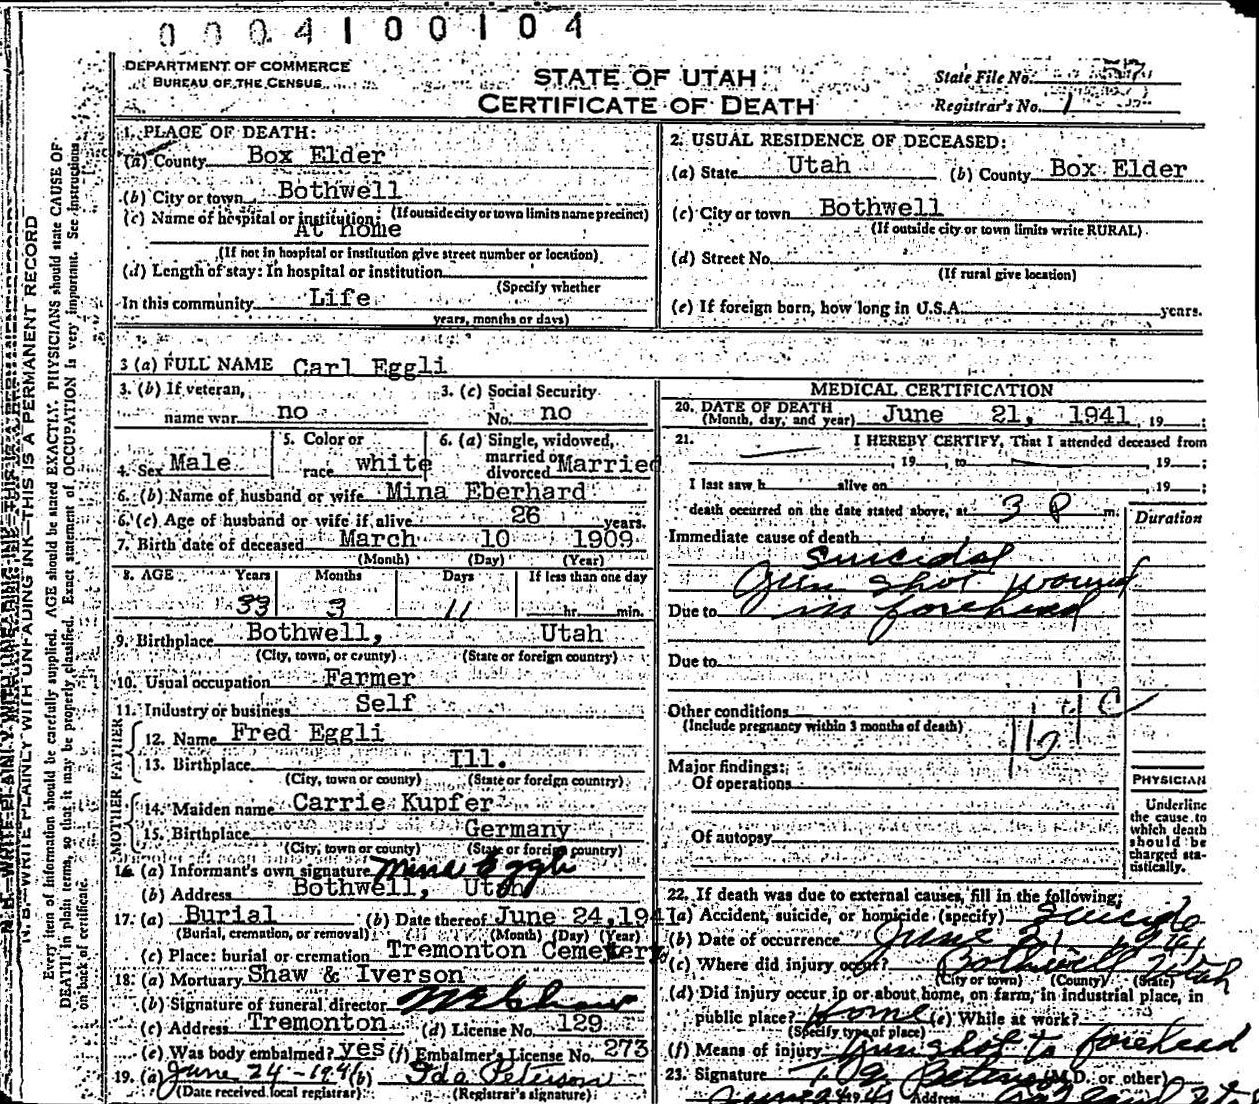 0004100104
DEPARTMENT OF COMMERCE
BUREAU OF THE CENSUS
STATE OF UTAH
CERTIFICATE OF DEATH
State File No.
Registrar's No. 1
N. B.—WRITE PLAINLY WITH UNFADING INK—THIS IS A PERMANENT RECORD
Every item of information should be carefully supplied. AGE should be stated EXACTLY. PHYSICIANS should state CAUSE OF
DEATH in plain terms, so that it may be properly classified. Exact statement of OCCUPATION is very important. See instructions
on back of certificate.
1. PLACE OF DEATH:
(a) County Box Elder
(b) City or town Bothwell
(If outside city or town limits name precinct)
(c) Name of hospital or institution:
At home
(If not in hospital or institution give street number or location)
(d) Length of stay: In hospital or institution
(Specify whether
In this community Life
years, months or days)
2. USUAL RESIDENCE OF DECEASED:
(a) State Utah (b) County Box Elder
(c) City or town Bothwell
(If outside city or town limits write RURAL)
(d) Street No.
(If rural give location)
(e) If foreign born, how long in U.S.A. years.
3 (a) FULL NAME Carl Eggli
3. (b) If veteran, name war no
3. (c) Social Security No. no
4. Sex Male
5. Color or race white
6. (a) Single, widowed, married or divorced Married
6. (b) Name of husband or wife Mina Eberhard
6. (c) Age of husband or wife if alive 26 years.
7. Birth date of deceased March 10 1909
(Month) (Day) (Year)
8. AGE Years Months Days If less than one day
33 3 11 hr. min.
9. Birthplace Bothwell, Utah
(City, town, or county) (State or foreign country)
10. Usual occupation Farmer
11. Industry or business Self
FATHER
12. Name Fred Eggli
13. Birthplace Ill.
(City, town or county) (State or foreign country)
MOTHER
14. Maiden name Carrie Kupfer
15. Birthplace Germany
(City, town or county) (State or foreign country)
16. (a) Informant's own signature Mina Eggli
(b) Address Bothwell, Utah
17. (a) Burial (b) Date thereof June 24, 1941
(Burial, cremation, or removal) (Month) (Day) (Year)
(c) Place: burial or cremation Tremonton Cemetery
18. (a) Mortuary Shaw & Iverson
(b) Signature of funeral director
(c) Address Tremonton (d) License No. 129
(e) Was body embalmed? yes (f) Embalmer's License No. 273
19. (a) June 24-1941 (b) Ida Peterson
(Date received local registrar) (Registrar's signature)
MEDICAL CERTIFICATION
20. DATE OF DEATH
(Month, day, and year) June 21, 1941, 19
21. I HEREBY CERTIFY, That I attended deceased from
, 19 , to , 19 ;
I last saw h alive on , 19 ;
death occurred on the date stated above, at 3 P m.
Duration
Immediate cause of death
Suicidal
Gun shot wound
Due to in forehead
Due to
Other conditions
(Include pregnancy within 3 months of death)
164c
Major findings:
Of operations
Of autopsy
PHYSICIAN
Underline
the cause to
which death
should be
charged sta-
tistically.
22. If death was due to external causes, fill in the following:
(a) Accident, suicide, or homicide (specify) Suicide
(b) Date of occurrence June 21 1941
(c) Where did injury occur? Bothwell Utah
(City or town) (County) (State)
(d) Did injury occur in or about home, on farm, in industrial place, in
public place? Home (e) While at work?
(Specify type of place)
(f) Means of injury Gun shot to forehead
23. Signature (M.D. or other)
Address